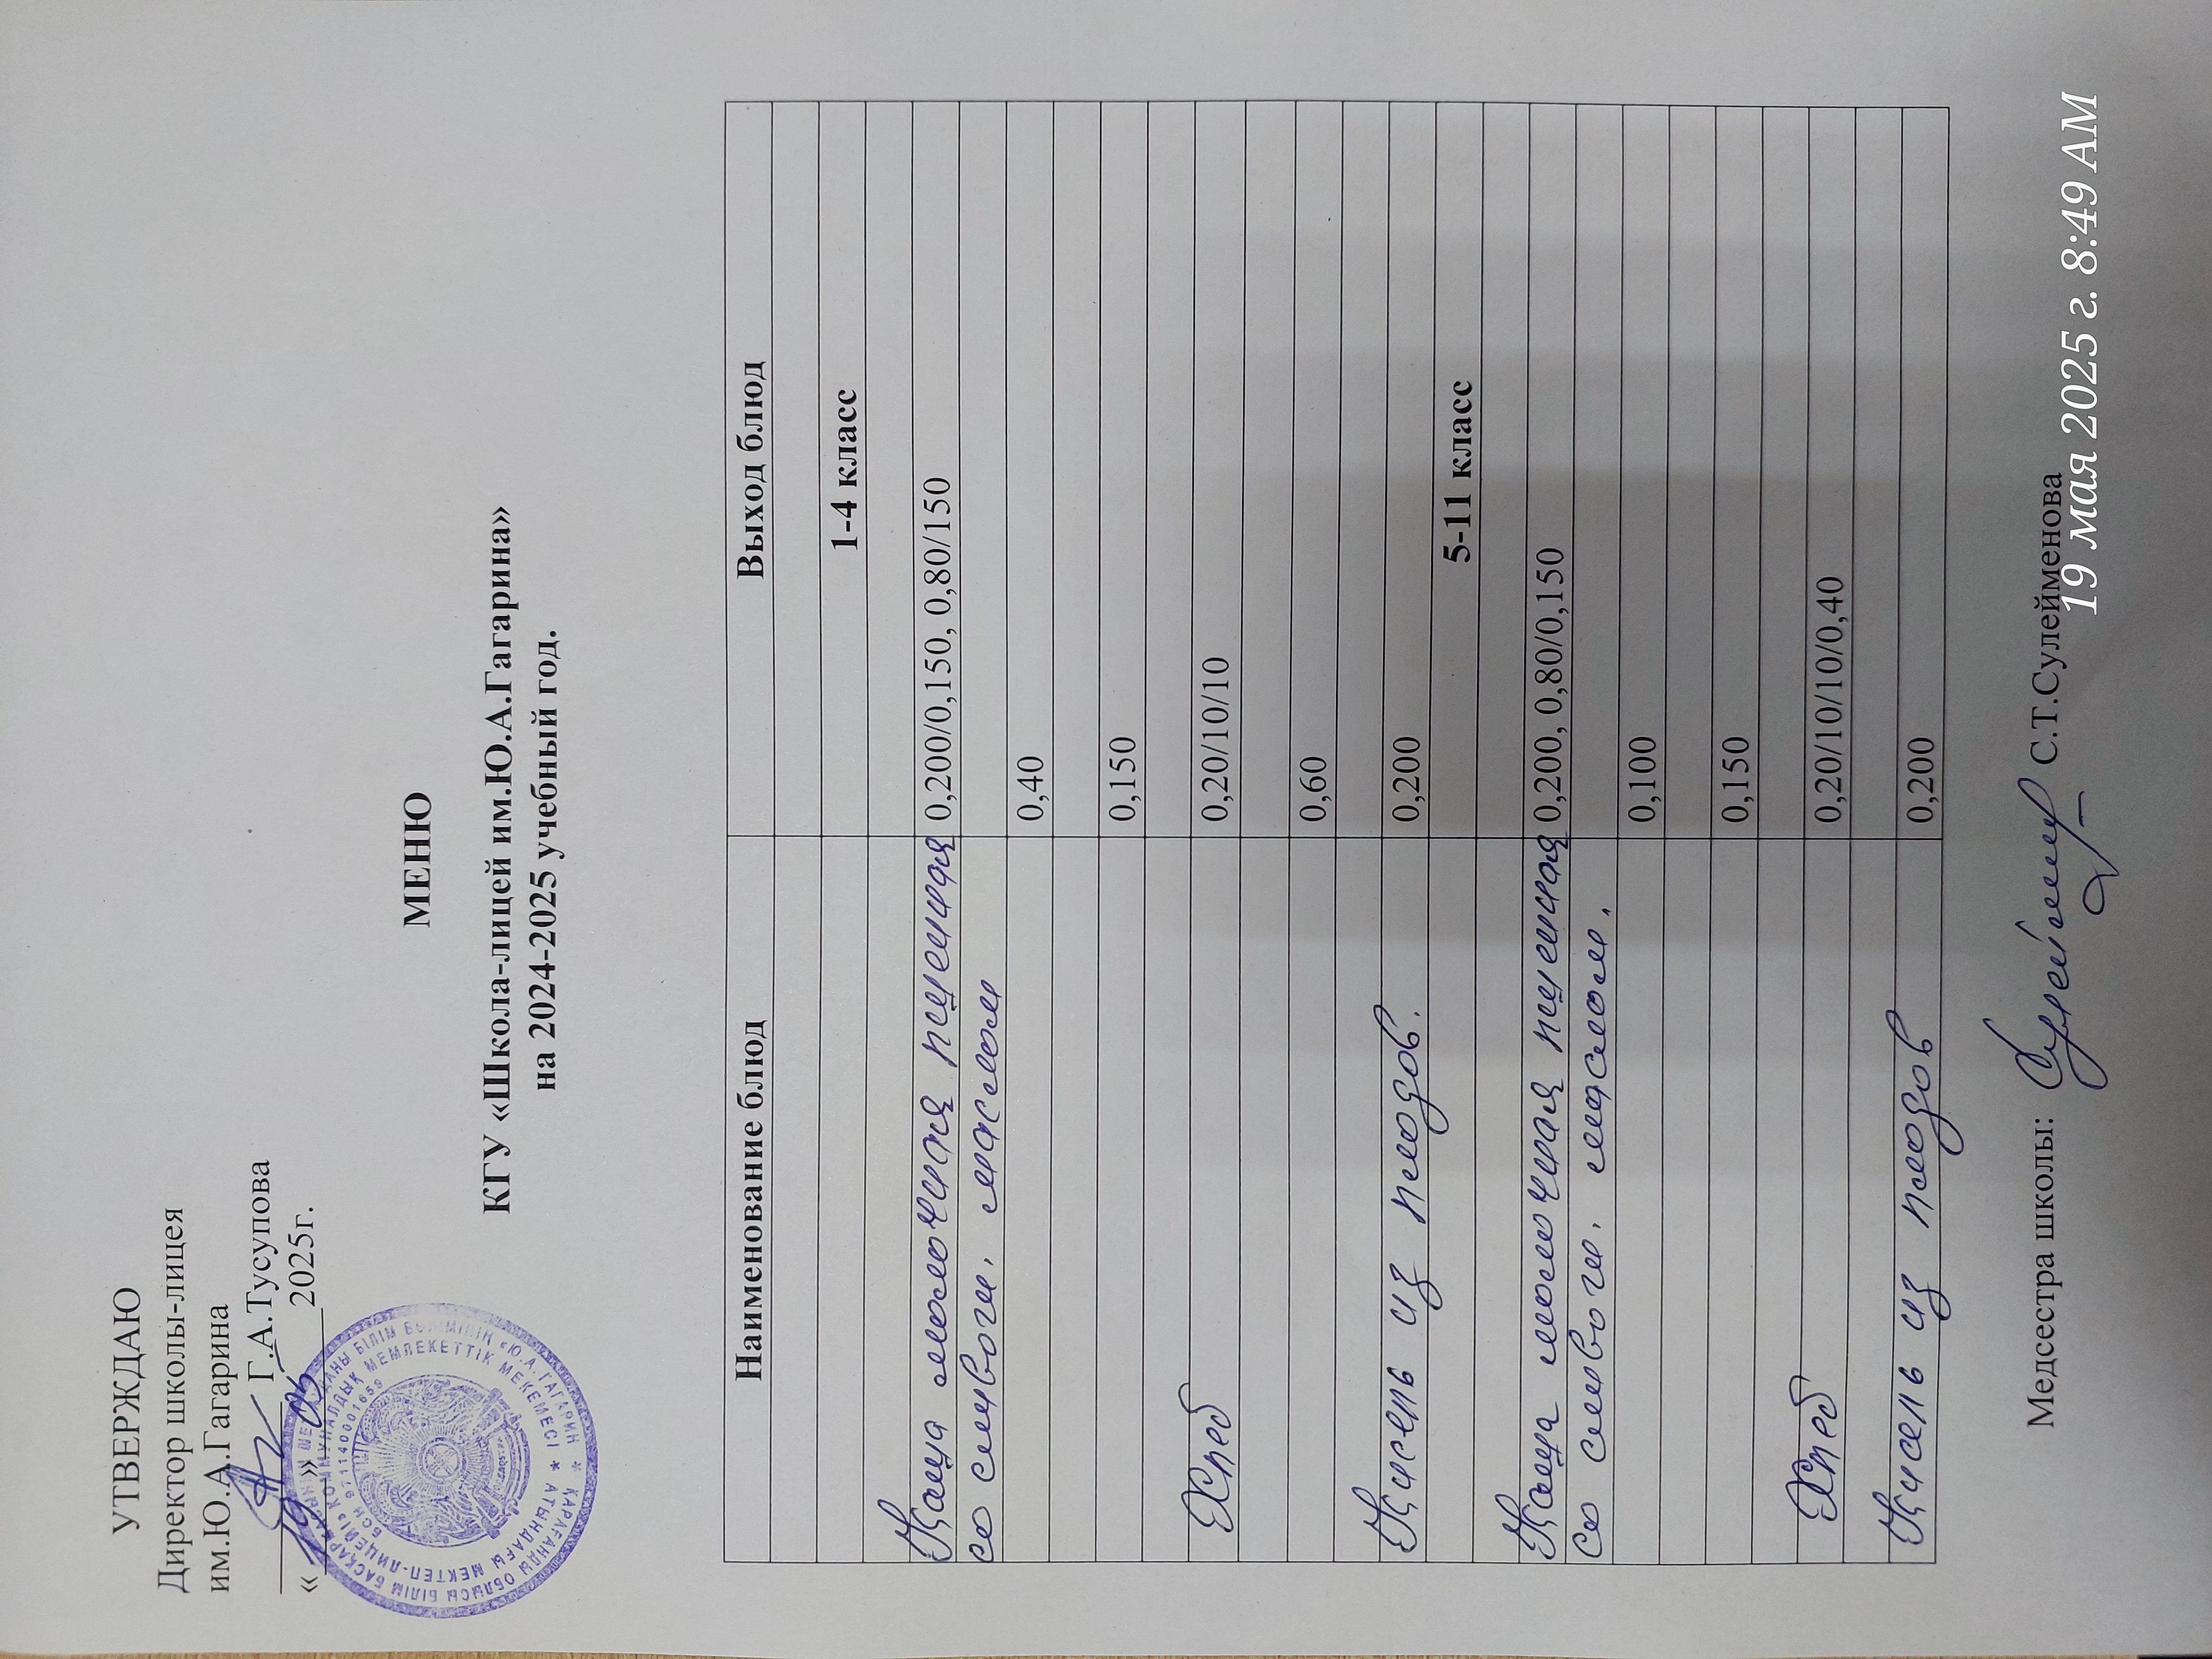 УТВЕРЖДАЮ
Директор школы-лицея
им.Ю.А.Гагарина
Г.А.Тусупова
«19» 05 2025г.
ҚАРАҒАНДЫ ОБЛЫСЫ БІЛІМ БАСҚАРМАСЫНЫҢ БІЛІМ БӨЛІМІНІҢ «Ю.А.ГАГАРИН
АТЫНДАҒЫ МЕКТЕП-ЛИЦЕЙІ» КОММУНАЛДЫҚ МЕМЛЕКЕТТІК МЕКЕМЕСІ
БСН 971140001659
МЕНЮ
КГУ «Школа-лицей им.Ю.А.Гагарина»
на 2024-2025 учебный год.
Наименование блюд Выход блюд
1-4 класс
Каша молочная пшенная 0,200/0,150, 0,80/150
со сливочн. маслом
0,40
0,150
Хлеб 0,20/10/10
0,60
Кисель из плодов. 0,200
5-11 класс
Каша молочная пшенная 0,200, 0,80/0,150
со сливочн. маслом.
0,100
0,150
Хлеб 0,20/10/10/0,40
Кисель из плодов 0,200
Медсестра школы: С.Т.Сулейменова
19 мая 2025 г. 8:49 AM